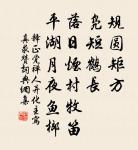 规圆矩方
凫短鹤长
落日烟村牧笛
平湖月夜鱼榔
释正觉禅人并化主写
真求赞词典网集